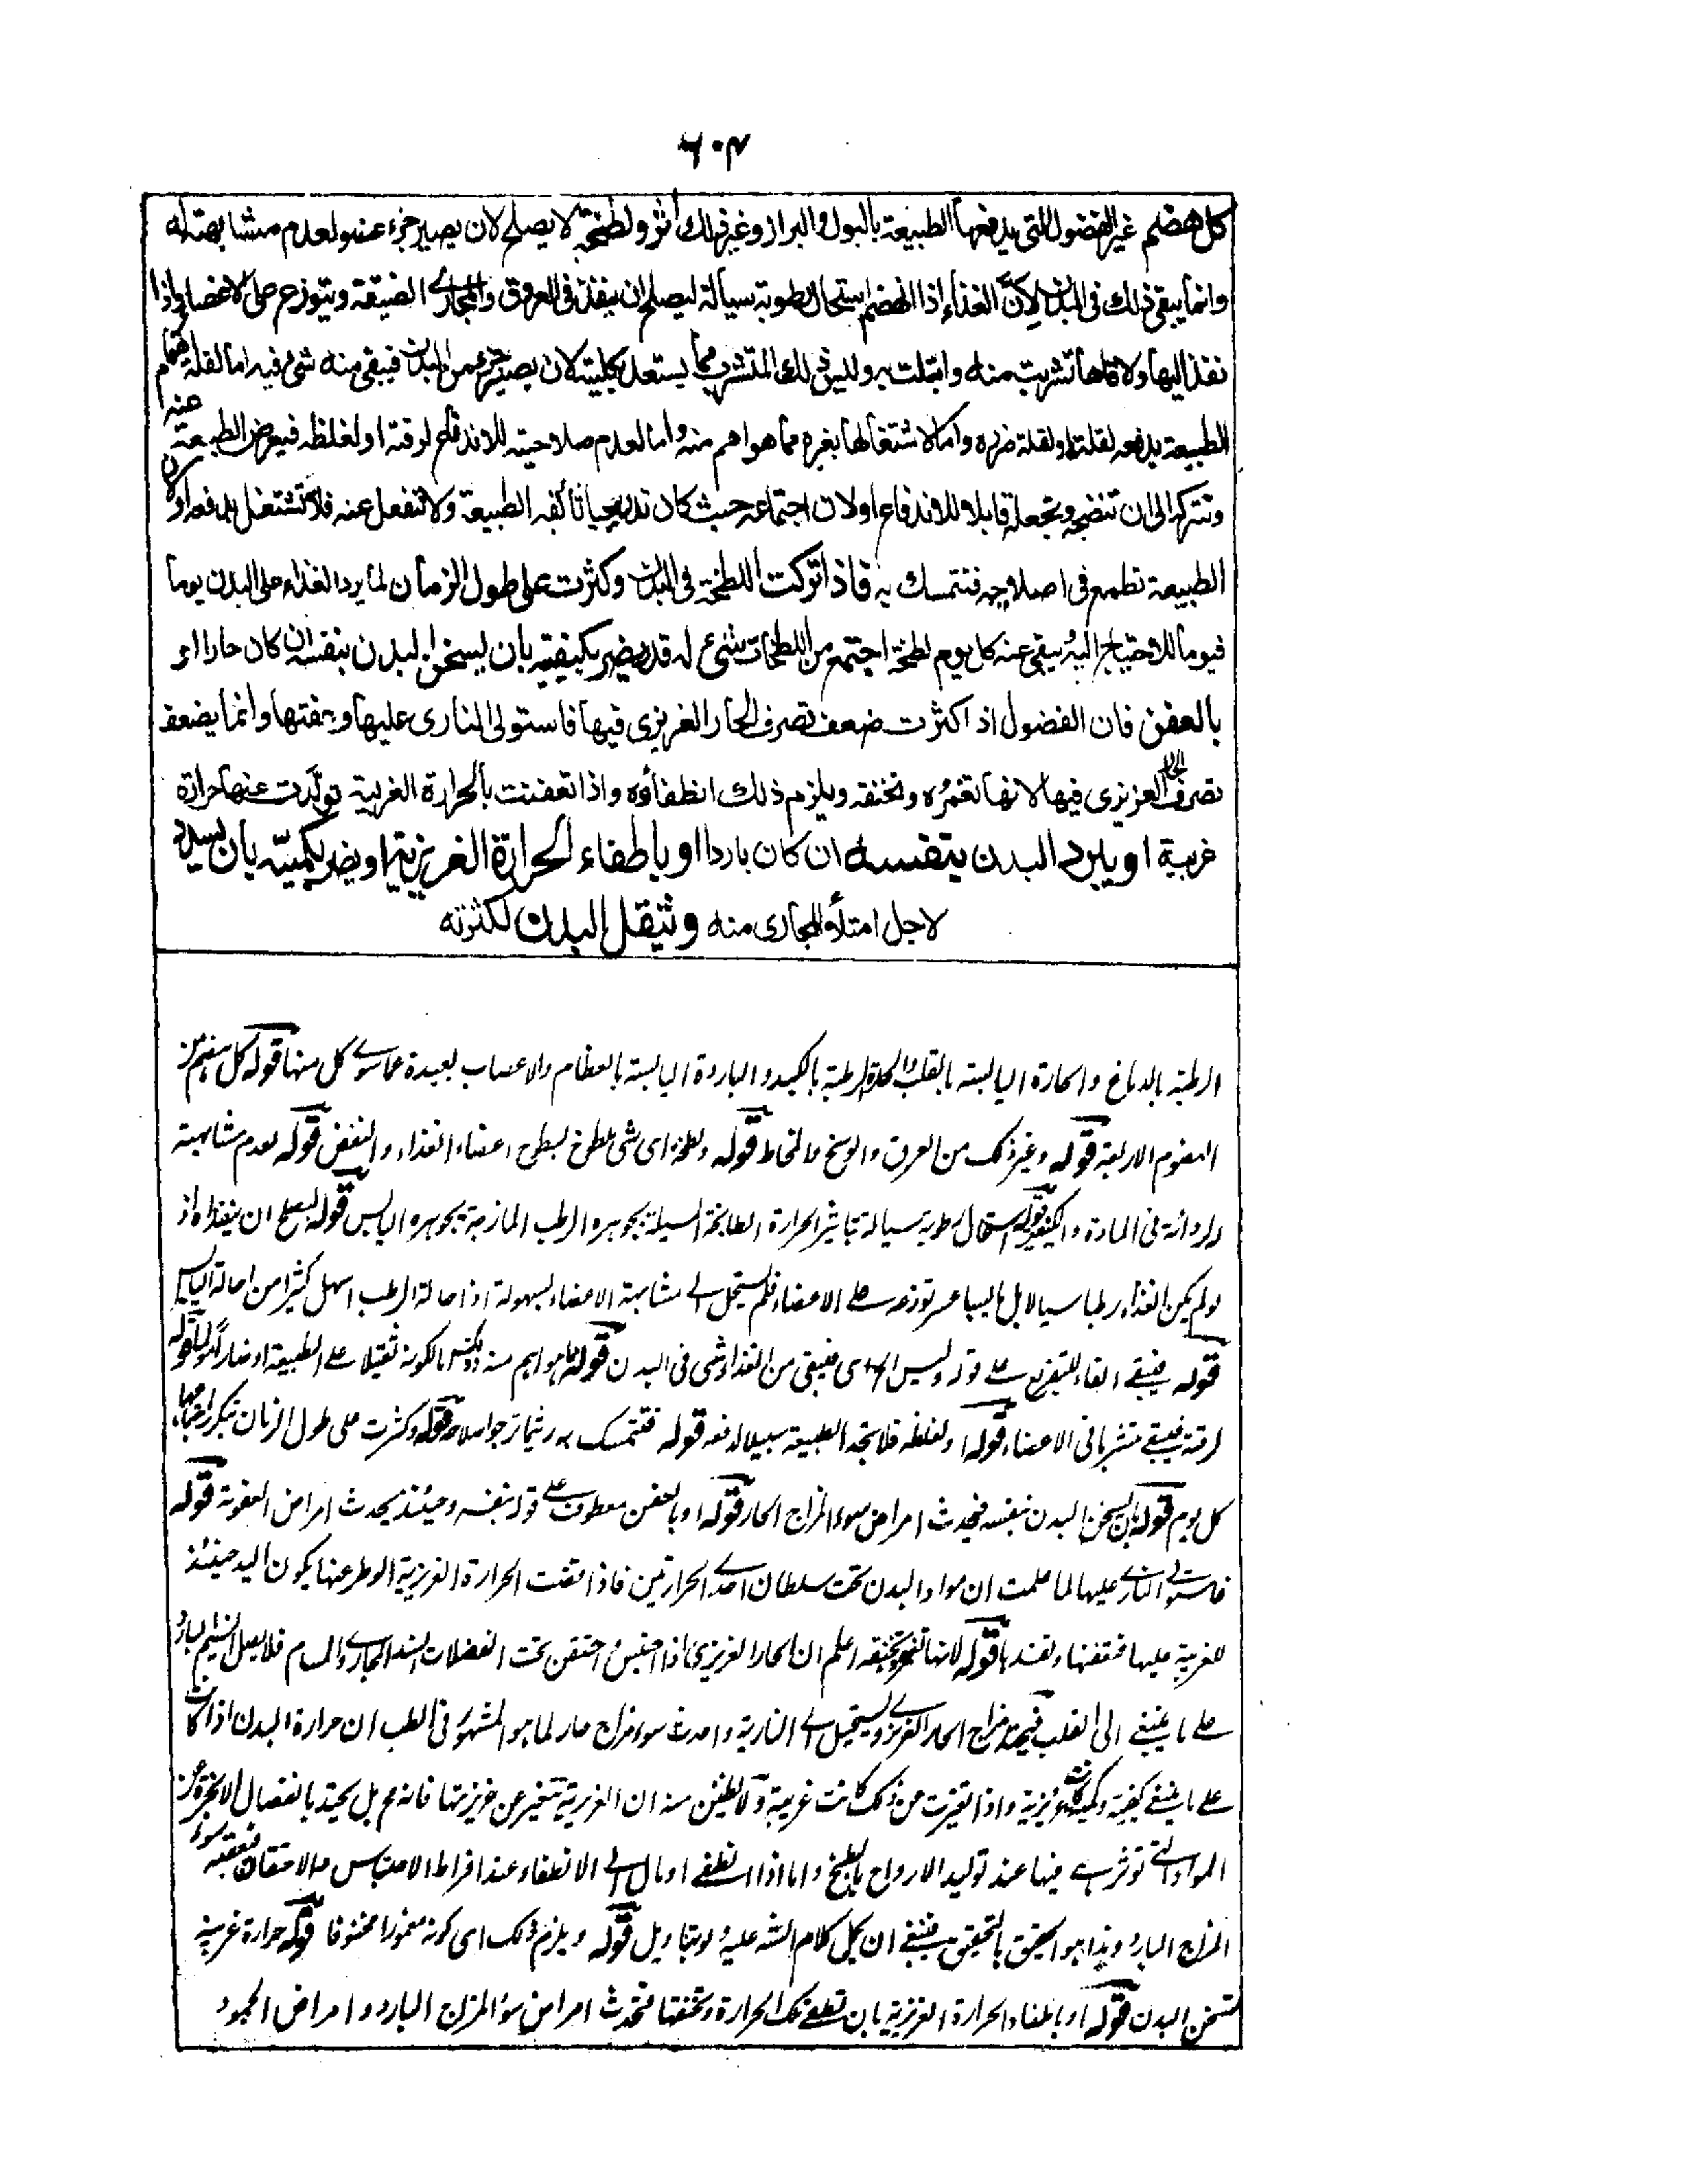 ٦٠٧
كل هضم غير الفضول التى يدفعها الطبيعة بالبول والبراز وغير ذلك اثر ولطخة لا يصلح لان يصير جزء عضو لعدم مشابهته له
وانما يبقى ذلك فى البدن لان الغذاء اذا انهضم استحال رطوبة سيالة ليصلح ان ينفذ فى العروق والمجارى الضيقة ويتوزع على الاعضاء واذا
نفذ اليها ولاقاها تشربت منه وابتلت به وليس ذلك المتشرب مما يستعد بكليته لان يصير جزء من البدن فيبقى منه شئ فيه اما لقلة اهتمام
الطبيعة بدفعه لقلته او لقلة ضرره واما لاشتغالها بغيره مما هو اهم منه واما لعدم صلاحيته للاندفاع لرقته او لغلظه فيعرض الطبيعة عنه
وتتركه الى ان تنضجه وتجعله قابلا للاندفاع او لان اجتماعه حيث كان تدريجيا تألفه الطبيعة ولا تنفعل عنه فلا تشتغل بدفعه او لان
الطبيعة تطمع فى اصلاحه فتتمسك به فاذا تركت اللطخة فى البدن وكثرت على طول الزمان لما يرد الغذاء على البدن يوما
فيوما للاحتياج اليه يبقى عنه كل يوم لطخة اجتمع من اللطخات شئ له قدر يضر بكيفيته بان يسخن البدن بنفسه ان كان حارا او
بالعفن فان الفضول اذا كثرت ضعف تصرف الحار الغريزى فيها فاستولى النارى عليها وعفنتها وانما يضعف
تصرف الحار الغريزى فيها لانها تغمره وتخنقه ويلزم ذلك انطفاؤه واذا تعفنت بالحرارة الغريبة تولدت عنها حرارة
غريبة او يبرد البدن بنفسه ان كان باردا او باطفاء الحرارة الغريزية او يضر بكميته بان يسدد
لاجل امتلاء المجارى منه وثيقل البدن لكثرته
الرطبة بالدماغ والحارة اليابسة بالقلب والحارة الرطبة بالكبد والباردة اليابسة بالعظام والاعصاب بعيدة عما سوے كل منها قوله كل هضم من
الهضوم الاربعة قوله وغير ذلك من العرق والوسخ والمخاط قوله ولطخة اى شئ يلطخ بسطوح اعضاء الغذاء والنفض قوله لعدم مشابهته
لردائته فى المادة والكيفية قوله استحال رطوبة سيالة بتاثير الحرارة الطابخة المسيلة بجوهره الرطب الممازجة بجوهره اليابس قوله ليصلح ان ينفذ اه اذ
لو لم يكن الغذاء رطبا سيالا بل يابسا عسر توزعه على الاعضاء فلم يستحل الى مشابهة الاعضاء بسهولة اذ احالة الرطب اسهل كثيرا من احالة اليابس
قوله فيبقى الفاء للتفريع على قوله وليس اه اى فيبقى من الغذاء شئ فى البدن قوله مما هو اهم منه لكونه ثقيلا على الطبيعة او ضارا
لرقته فيبقى متشربا فى الاعضاء قوله او لغلظه فلا تجد الطبيعة سبيلا لدفعه قوله فتتمسك به ريثما ترجو اصلاحه قوله وكثرت على طول الزمان
كل يوم قوله بان يسخن البدن بنفسه فيحدث امراض سوء المزاج الحار قوله او بالعفن معطوف على قوله بنفسه وحينئذ يحدث امراض العفونة قوله
فاستولى النارى عليها لما علمت ان مواد البدن تحت سلطان احدى الحرارتين فاذا الحرارة الغريزية عنها يكون اليد حينئذ
للغريبة عليها فتعفنها وتفسدها قوله لانها تغمره وتخنقه اعلم ان الحار الغريزى اذا احتبس واحتقن تحت الفضلات المسام فلا يصل النسيم البارد
على ما ينبغى الى القلب مزاج الحار الغريزى ويستحيل الى النارية واحدث سوء مزاج حار لما هو المشهور فى الطب ان حرارة البدن اذا كانت
على ما ينبغى كيفية وكمية كانت غريزية واذا تغيرت من ذلك كانت غريبة ولا يظنن منه ان الغريزية تتغير عن غريزتها فانه مح بل بانفصال الابخرة عن
المواد التى تؤثر هى فيها عند توليد الارواح بالطبخ واما اذا انطفى او مال الى الانطفاء عند افراط الاحتباس والاحتقان سوء
المزاج البارد وهذا هو الحقيق بالتحقيق فينبغى ان يحمل كلام الشه عليه ولو بتاويل قوله ويلزم ذلك اى كونه مغمورا مخنوقا قوله حرارة غريبة
تسخن البدن قوله او باطفاء الحرارة الغريزية بان تطفئ تلك الحرارة وتخنقها فتحدث امراض سوء المزاج البارد وامراض الجمود